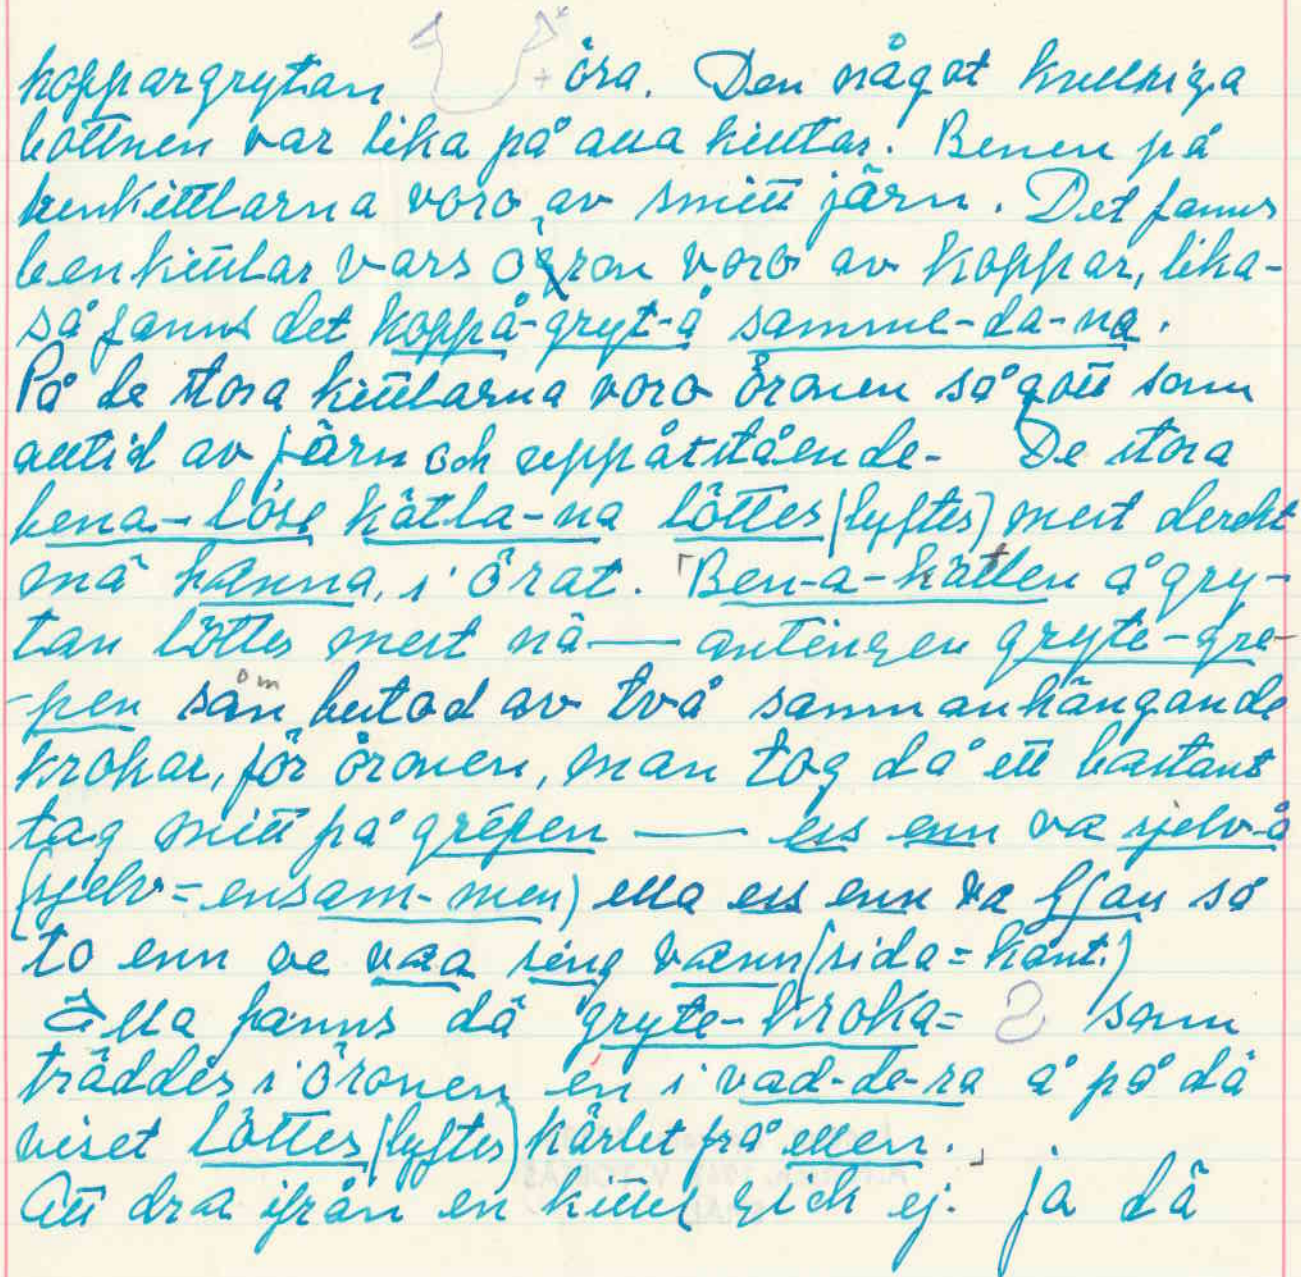 koppargrytan öra. Den något kullriga
bottnen var lika på alla kittlar. Benen på
benkittlarna voro av smitt järn. Det fanns
benkittlar vars öron voro av koppar, lika-
så fanns det koppå-gryt-å samme-da-na.
På de stora kittlarna voro öronen så gott som
alltid av järn och uppåtstående. De stora
bena-löse kätla-na löttes (lyftes) mest derekt
mä hanna, i örat. Ben-a-kätlen å gry-
tan löttes mest mä — antingen gryte-gre-
-pen som butad av två sammanhängande
krokar, för öronen, man tog då ett bastant
tag mitt på grépen — ess enn va sjelv-å
(sjelv = ensam-men) ella ess enn va fjau så
to enn ve vaa seng vænn (sida = kant.)
Älla fanns dä gryte-kroka = som
träddes i öronen én i vad-de-ra å på dä
viset löttes (lyftes) kärlet frå ellen.
Att dra ifrån en kittel gick ej. ja dä